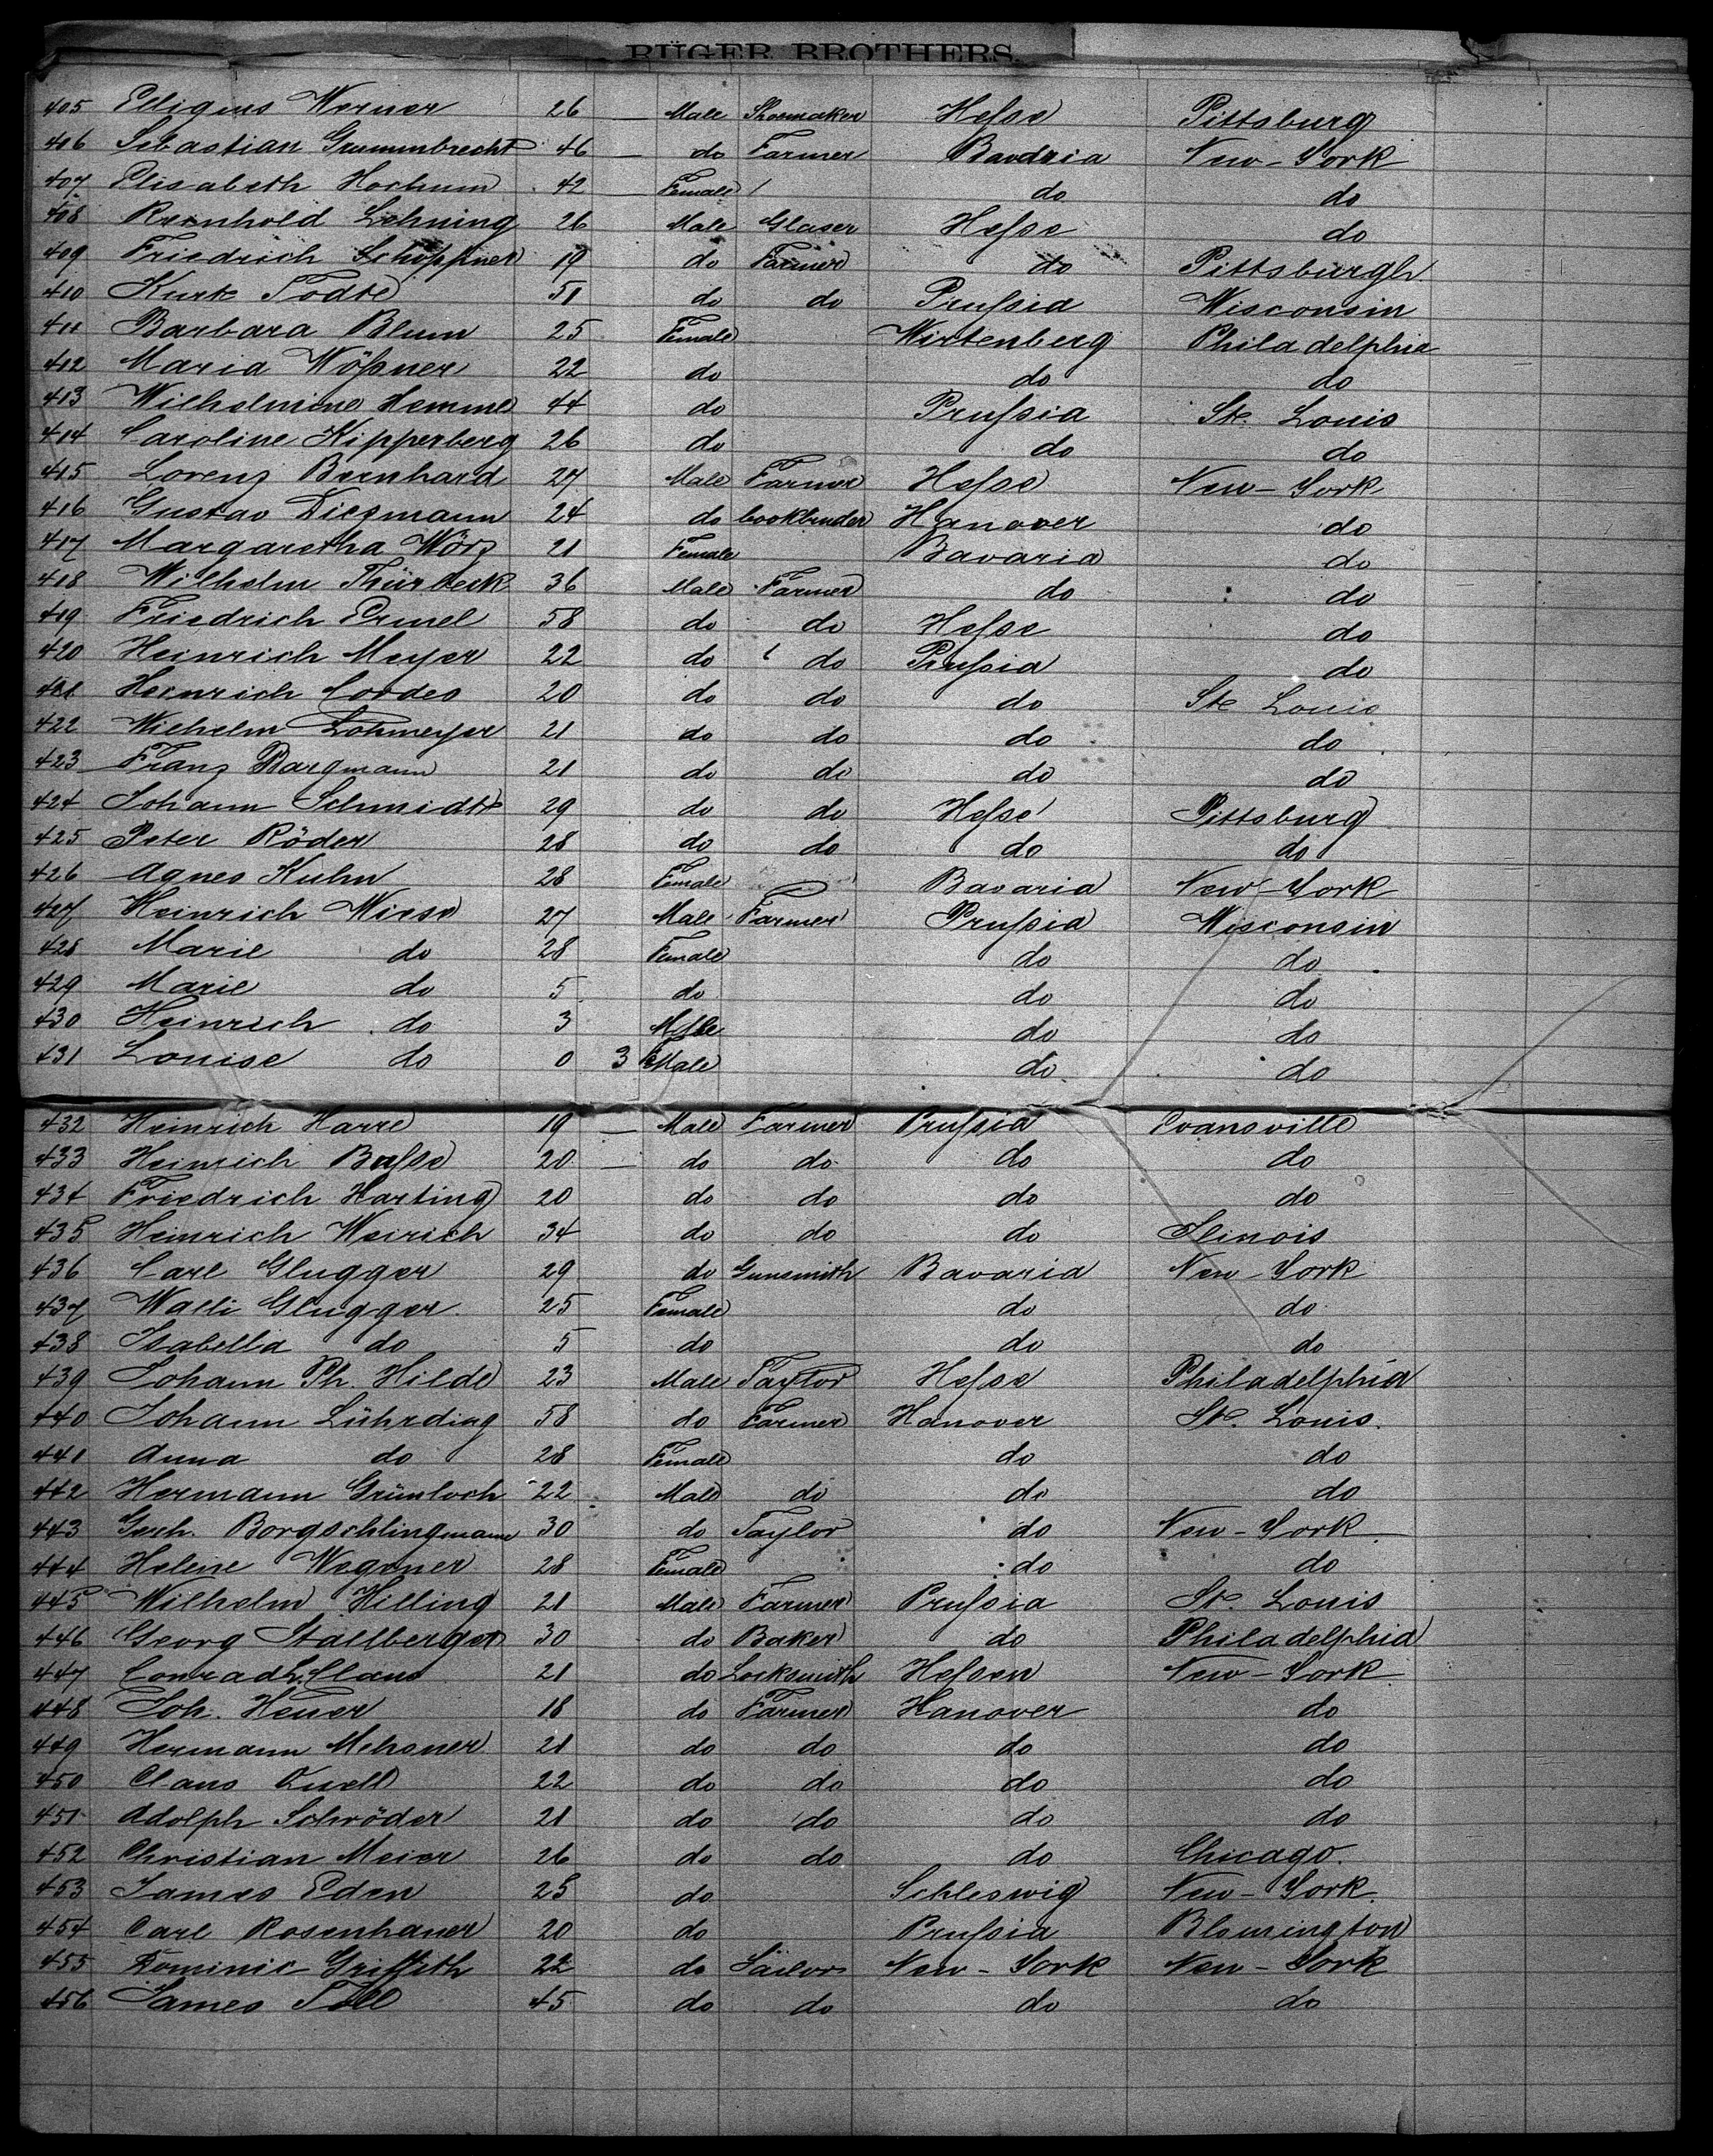 RÜGER BROTHERS.
405 Eligius Werner 26 — Male Shoemaker Hesse Pittsburg
406 Sebastian Grummbrecht 46 — do Farmer Bavaria New-York
407 Elisabeth Hochum 42 — Female do do
408 Reinhold Lehning 26 Male Glaser Hesse do
409 Friedrich Schöppner 19 do Farmer do Pittsburgh
410 Kurt Todte 51 do do Prussia Wisconsin
411 Barbara Blum 25 Female Wirtenberg Philadelphia
412 Maria Wößner 22 do do do
413 Wilhelmine Hemme 44 do Prussia St. Louis
414 Caroline Kipperberg 26 do do do
415 Lorenz Bernhard 27 Male Farmer Hesse New-York
416 Gustav Diegmann 24 do bookbinder Hanover do
417 Margaretha Wörz 21 Female Bavaria do
418 Wilhelm Thürbeck 36 Male Farmer do do
419 Friedrich Ermel 58 do do Hesse do
420 Heinrich Meyer 22 do do Prussia do
421 Heinrich Cordes 20 do do do St. Louis
422 Wilhelm Lohmeyer 21 do do do do
423 Franz Bargmann 21 do do do do
424 Johann Schmidt 29 do do Hesse Pittsburg
425 Peter Röder 28 do do do do
426 Agnes Kuhn 28 Female Bavaria New-York
427 Heinrich Wiese 27 Male Farmer Prussia Wisconsin
428 Marie do 28 Female do do
429 Marie do 5 do do do
430 Heinrich do 3 Male do do
431 Louise do 0 3 Male do do
432 Heinrich Harre 19 — Male Farmer Prussia Evansville
433 Heinrich Busse 20 — do do do do
434 Friedrich Harting 20 do do do do
435 Heinrich Weirich 34 do do do Ilinois
436 Carl Glugger 29 do Gunsmith Bavaria New-York
437 Walli Glugger 25 Female do do
438 Isabella do 5 do do do
439 Johann Ph. Hilde 23 Male Taylor Hesse Philadelphia
440 Johann Lührding 58 do Farmer Hanover St. Louis
441 Anna do 28 Female do do
442 Hermann Grünloch 22 Male do do do
443 Gerh. Borgschlingmann 30 do Taylor do New-York
444 Helene Wegener 28 Female do do
445 Wilhelm Hilling 21 Male Farmer Prussia St. Louis
446 Georg Stallberger 30 do Baker do Philadelphia
447 Conrad L. Claus 21 do Locksmith Hessen New-York
448 Joh. Heuer 18 do Farmer Hanover do
449 Hermann Mehsner 21 do do do do
450 Claus Quell 22 do do do do
451 Adolph Schröder 21 do do do do
452 Christian Meier 26 do do do Chicago
453 James Eden 25 do Schleswig New-York
454 Carl Rosenhauer 20 do Prussia Blomington
455 Dominic Griffith 22 do Sailor New-York New-York
456 James Toll 45 do do do do